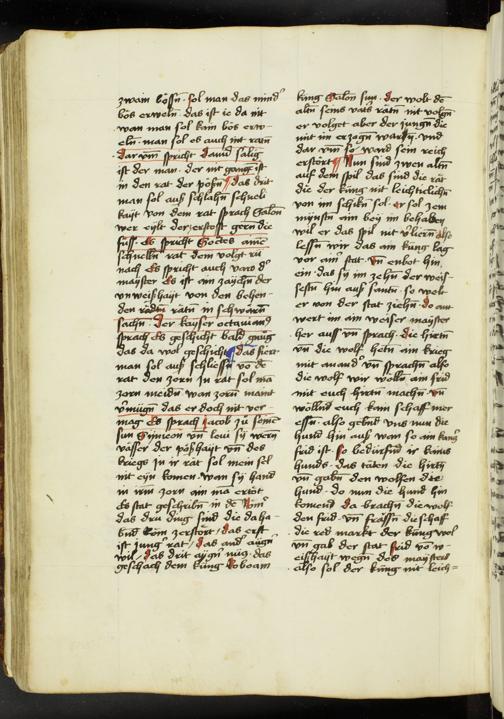 zwain bössn sol man das mind'
bös erweln das ist ie da nit
wan man sol kain bös erw
eln man sol es auch nit ratn
dar vm spricht dauid sälig
ist der man der nit gangn ist
in den rat der pösn das drit
man sol auf schlahn schnell
kayt von dem rat sprach Salon
wer eylt der zerstost gern die
füss Es spricht
schnelln rat dem volgt ru
nach Es spricht auch
mayster Es ist ain zaychn der
vnweishayt von den
den ratn in schwärn
sachn der kayser octauiang
sprach es geschicht bald gnug
das da wol geschicht das fiert
man sol auf schliessn vō dē
rat den zorn In rat sol ma
zorn meidn wan zorn mant
das er doch nit ver
mag Es sprach Jacob zu seine
sun Simeon vn leui sy wern
vässer der posshayt vn des
kriegs zu ir rat sol mein sol
nit eyn komen wan sy hand
in irm zorn ain ma ertöt
Es stat geschribn in dē
das dru ding sind die da ha
bnd Rom zerstört das erst
ist jung rat das and' aygn
wil das drit aygn nucz das
geschach dem kung Roboam
kung Salon sun der wolt de
altn seins vats ratn nit volgn
er volget aber der jungn die
mit im erzogn warn vnd
dar vm so ward sein reich
erstört Nun sind zwen altn
auf dem spil das sind die rät
die der kung nit leichtiklich
von im schikn sol er sol zem
mynstn ain bey im behabn
wil er das spil nit vliern Als
lessn wir das ain kung lag
vor ain stat vn enbot hin
ein das sy im zehn der weis
sestn hin auss santn so wolt
er von der stat ziehn do ant
wert im ain weiser mayster
her auss vn sprach die hirtn
vn die wolf hetn ain krieg
mit anand' vn sprachn also
die wolf wir wölln ain frid
mit euch hirtn machn vn
wöllnd euch kein schaff mer
essn also gebnt vns nun die
hund hin auss wan so ain ganz
frid ist so bedürfnd ir kains
hunds das täten die hirtn
vn gabn den wolfen die
hund do nun die hund hin
komend da brachn die wolf
den frid vn frässn die schaff
die red markt der kung wol
vn gab der stat frid vō w
eisshayt wegn des maysters
also sol der kung nit leich=